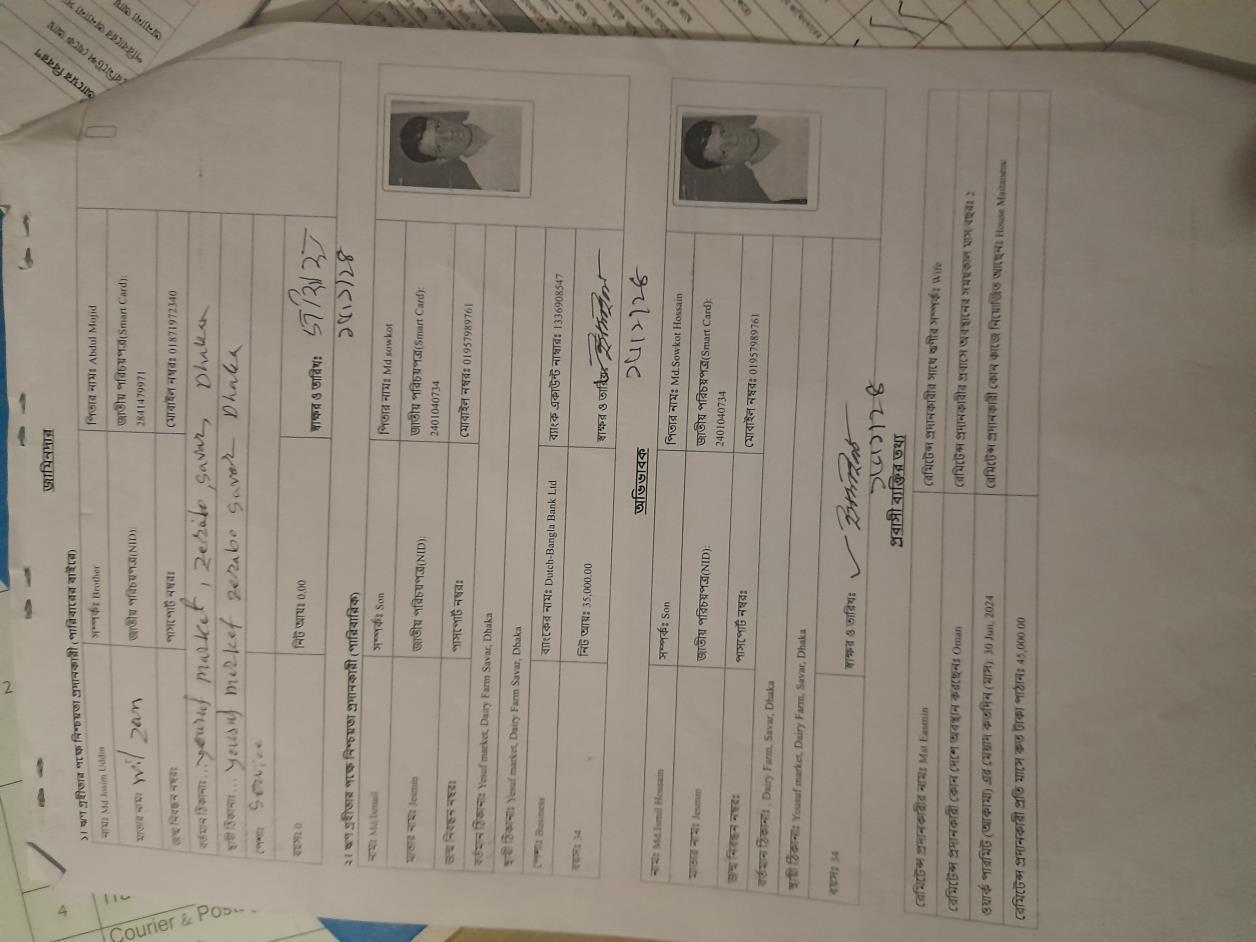 জামিনদার
১। ঋণ গ্রহীতার পক্ষে নিশ্চয়তা প্রদানকারী (পরিবারের বাইরে)
নাম: Md Jasim Uddin সম্পর্ক: Brother পিতার নাম: Abdul Mojid
মাতার নাম: জাতীয় পরিচয়পত্র(NID): জাতীয় পরিচয়পত্র(Smart Card): 2841479971
জন্ম নিবন্ধন নম্বর: পাসপোর্ট নম্বর: মোবাইল নম্বর: 01871972340
বর্তমান ঠিকানা: yousuf market, zerabo, savar, Dhaka
স্থায়ী ঠিকানা: yousuf market zerabo savar Dhaka
পেশা: Service
বয়স: 0 নিট আয়: 0.00 স্বাক্ষর ও তারিখ:
২। ঋণ গ্রহীতার পক্ষে নিশ্চয়তা প্রদানকারী (পারিবারিক)
নাম: Md Ismail সম্পর্ক: Son পিতার নাম: Md sowkot
মাতার নাম: Jesmin জাতীয় পরিচয়পত্র(NID): জাতীয় পরিচয়পত্র(Smart Card): 2401040734
জন্ম নিবন্ধন নম্বর: পাসপোর্ট নম্বর: মোবাইল নম্বর: 01957989761
বর্তমান ঠিকানা: Yesuf market, Dairy Farm Savar, Dhaka
স্থায়ী ঠিকানা: Yesuf market, Dairy Farm Savar, Dhaka
পেশা: Business ব্যাংকের নাম: Dutch-Bangla Bank Ltd ব্যাংক একাউন্ট নাম্বার: 1336908547
বয়স: 34 নিট আয়: 35,000.00 স্বাক্ষর ও তারিখ:
অভিভাবক
নাম: Md Ismil Hossain সম্পর্ক: Son পিতার নাম: Md.Sowkot Hossain
মাতার নাম: Jesmin জাতীয় পরিচয়পত্র(NID): জাতীয় পরিচয়পত্র(Smart Card): 2401040734
জন্ম নিবন্ধন নম্বর: পাসপোর্ট নম্বর: মোবাইল নম্বর: 01957989761
বর্তমান ঠিকানা: , Dairy Farm, Savar, Dhaka
স্থায়ী ঠিকানা: Yousuf market, Dairy Farm, Savar, Dhaka
বয়স: 34 স্বাক্ষর ও তারিখ:
প্রবাসী ব্যক্তির তথ্য
রেমিটেন্স প্রদানকারীর নাম: Mst Easmin রেমিটেন্স প্রদানকারীর সাথে ঋণীর সম্পর্ক: Wife
রেমিটেন্স প্রদানকারী কোন দেশে অবস্থান করছেন: Oman রেমিটেন্স প্রদানকারীর প্রবাসে অবস্থানের সময়কাল মাস বছর: 2
ওয়ার্ক পারমিট (আকামা) এর মেয়াদ কতদিন (মাস) 30 Jun, 2024 রেমিটেন্স প্রদানকারী কোন কাজে নিয়োজিত আছেন: House Maitanene
রেমিটেন্স প্রদানকারী প্রতি মাসে কত টাকা পাঠান: 45,000.00
2
4
Courier &